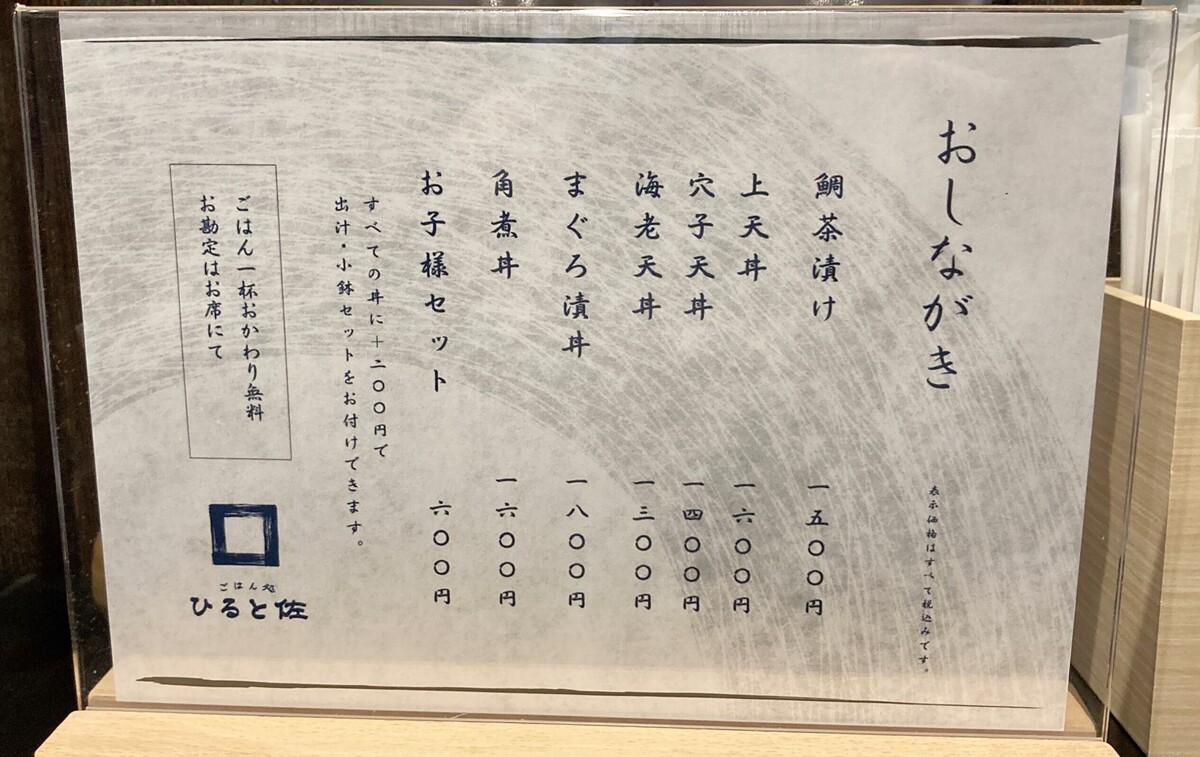 おしながき
表示価格はすべて税込みです。
鯛茶漬け 一五〇〇円
上天丼 一六〇〇円
穴子天丼 一四〇〇円
海老天丼 一三〇〇円
まぐろ漬丼 一八〇〇円
角煮丼 一六〇〇円
お子様セット 六〇〇円
すべての丼に+二〇〇円で
出汁・小鉢セットをお付けできます。
ごはん一杯おかわり無料
お勘定はお席にて
ごはん処
ひると佐